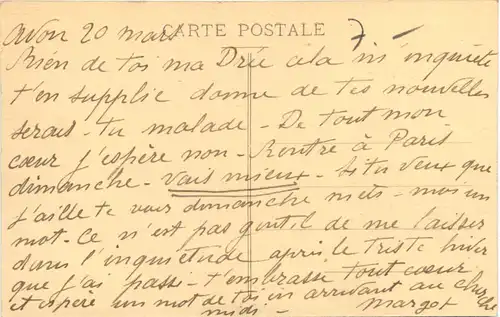 CARTE POSTALE
Avon 20 mars
Rien de toi ma Drée cela m'inquiète
t'en supplie donne de tes nouvelles
serais-tu malade - De tout mon
cœur j'espère non - Rentre à Paris
dimanche - vais mieux - si tu veux que
j'aille te voir dimanche mets-moi un
mot - Ce n'est pas gentil de me laisser
dans l'inquiétude après le triste hiver
que j'ai passé - t'embrasse tout cœur
et espère un mot de toi en arrivant au
midi - Margot